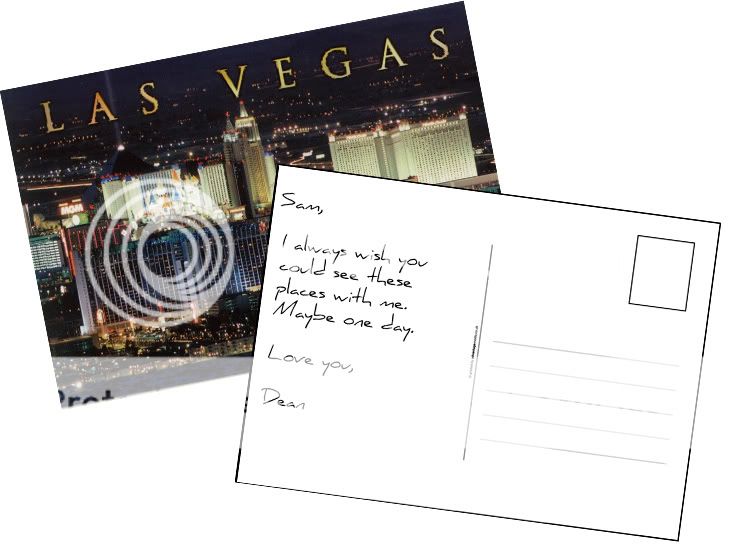 LAS VEGAS
MGM
Sam,
I always wish you
could see these
places with me.
Maybe one day.
Love you,
Dean